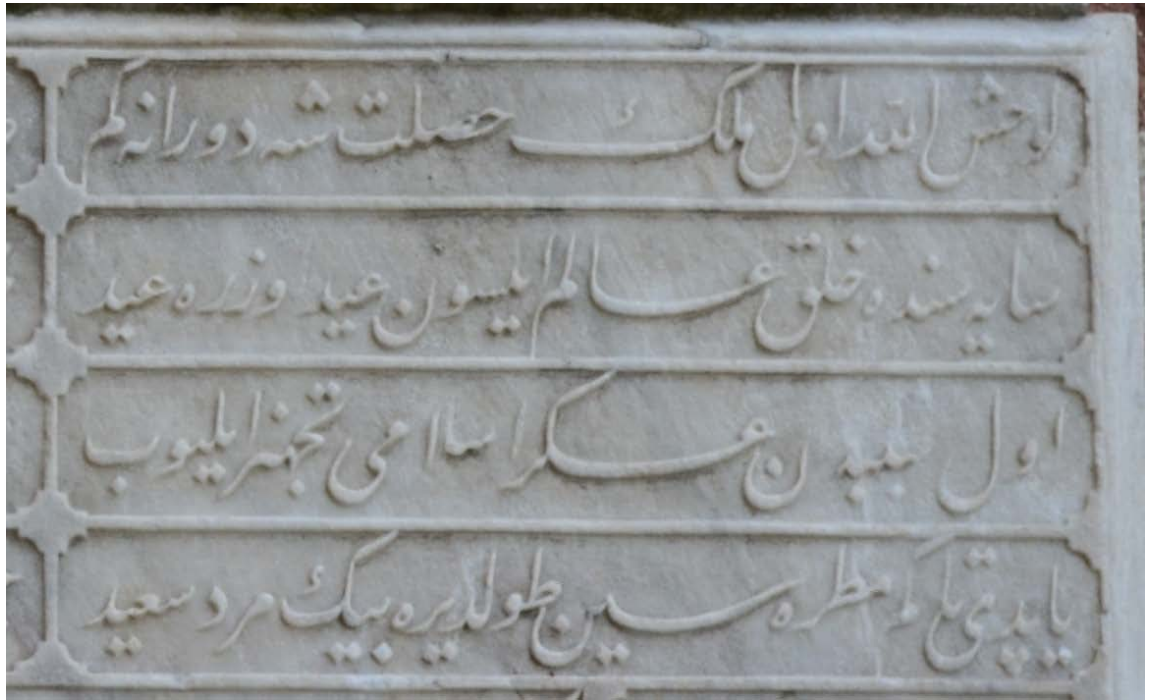 لوحش الله اول ملك خصلت شه دورانه كم
سايه سنده خلق عالم ايلسون عيد وزره عيد
اول سببدن عسكر اسلامی تجهيز ايليوب
ياپدی تا مطره سين طولديره بيك مرد سعيد